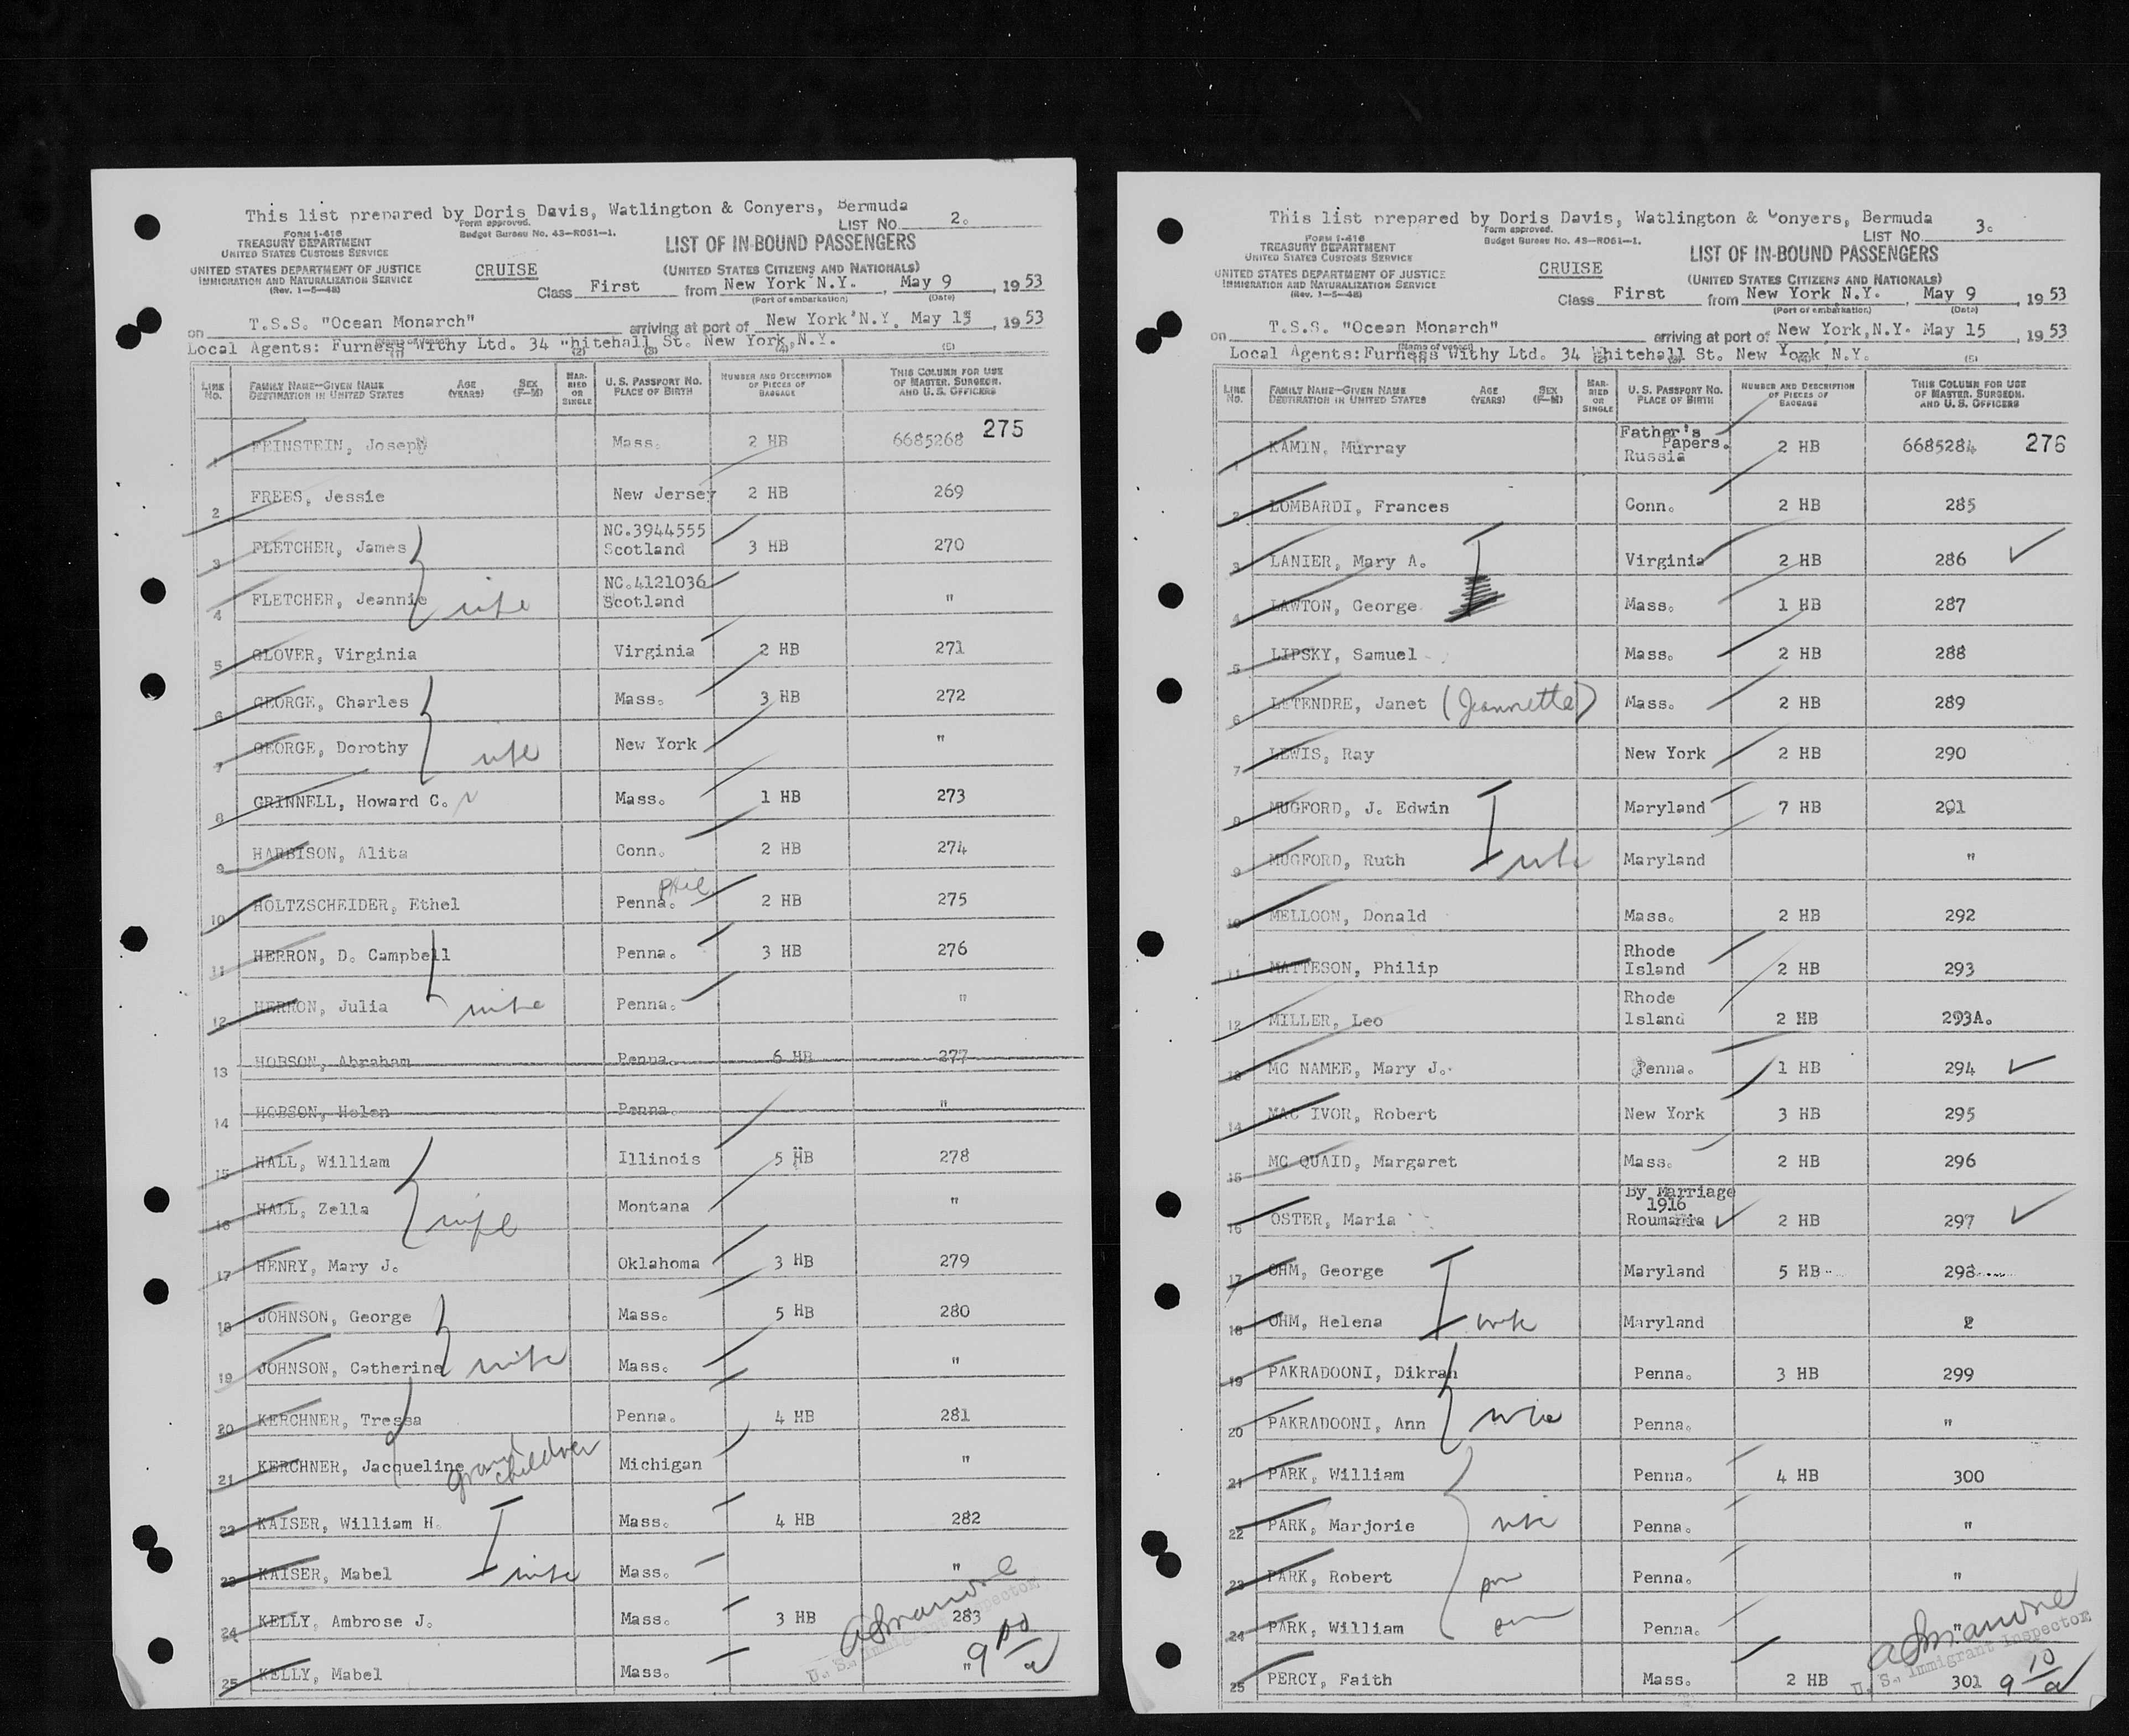 This list prepared by Doris Davis, Watlington & Conyers, Bermuda
FORM I-416
TREASURY DEPARTMENT
UNITED STATES CUSTOMS SERVICE
Form approved.
Budget Bureau No. 43-R061-1.
LIST NO. 2.
LIST OF IN-BOUND PASSENGERS
UNITED STATES DEPARTMENT OF JUSTICE
IMMIGRATION AND NATURALIZATION SERVICE
(Rev. 1-5-48)
CRUISE
(UNITED STATES CITIZENS AND NATIONALS)
Class First from New York N.Y. , May 9 , 1953
(Port of embarkation) (Date)
on T.S.S. "Ocean Monarch" arriving at port of New York N.Y. May 15 , 1953
(Name of vessel)
Local Agents: Furness Withy Ltd. 34 "hitehall St. New York, N.Y.
(1) (2) (3) (4) (5)
LINE No. FAMILY NAME—GIVEN NAME DESTINATION IN UNITED STATES AGE (YEARS) SEX (F-M) MARRIED OR SINGLE U.S. PASSPORT NO. PLACE OF BIRTH NUMBER AND DESCRIPTION OF PIECES OF BAGGAGE THIS COLUMN FOR USE OF MASTER, SURGEON, AND U. S. OFFICERS
1 FEINSTEIN, Joseph Mass. 2 HB 6685268 275
2 FREES, Jessie New Jersey 2 HB 269
3 FLETCHER, James NC.3944555 Scotland 3 HB 270
4 FLETCHER, Jeannie wife NC.4121036 Scotland "
5 GLOVER, Virginia Virginia 2 HB 271
6 GEORGE, Charles Mass. 3 HB 272
7 GEORGE, Dorothy wife New York "
8 GRINNELL, Howard C. Mass. 1 HB 273
9 HARBISON, Alita Conn. 2 HB 274
10 HOLTZSCHEIDER, Ethel Penna. Phil 2 HB 275
11 HERRON, D. Campbell Penna. 3 HB 276
12 HERRON, Julia wife Penna. "
13 HOBSON, Abraham Penna. 6 HB 277
14 HOBSON, Helen Penna. "
15 HALL, William Illinois 5 HB 278
16 HALL, Zella wife Montana "
17 HENRY, Mary J. Oklahoma 3 HB 279
18 JOHNSON, George Mass. 5 HB 280
19 JOHNSON, Catherine wife Mass. "
20 KERCHNER, Tressa Penna. 4 HB 281
21 KERCHNER, Jacqueline grand children Michigan "
22 KAISER, William H. Mass. 4 HB 282
23 KAISER, Mabel wife Mass. "
24 KELLY, Ambrose J. Mass. 3 HB 283
25 KELLY, Mabel Mass. "
U. S. Immigrant Inspector
9 00/a
This list prepared by Doris Davis, Watlington & Conyers, Bermuda
FORM I-416
TREASURY DEPARTMENT
UNITED STATES CUSTOMS SERVICE
Form approved.
Budget Bureau No. 43-R061-1.
LIST NO. 3.
LIST OF IN-BOUND PASSENGERS
UNITED STATES DEPARTMENT OF JUSTICE
IMMIGRATION AND NATURALIZATION SERVICE
(Rev. 1-5-48)
CRUISE
(UNITED STATES CITIZENS AND NATIONALS)
Class First from New York N.Y. , May 9 , 1953
(Port of embarkation) (Date)
on T.S.S. "Ocean Monarch" arriving at port of New York, N.Y. May 15 , 1953
(Name of vessel)
Local Agents: Furness Withy Ltd. 34 Whitehall St. New York N.Y.
(1) (5)
LINE No. FAMILY NAME—GIVEN NAME DESTINATION IN UNITED STATES AGE (YEARS) SEX (F-M) MARRIED OR SINGLE U.S. PASSPORT NO. PLACE OF BIRTH NUMBER AND DESCRIPTION OF PIECES OF BAGGAGE THIS COLUMN FOR USE OF MASTER, SURGEON, AND U. S. OFFICERS
1 KAMIN, Murray Father's Papers. Russia 2 HB 6685284 276
2 LOMBARDI, Frances Conn. 2 HB 285
3 LANIER, Mary A. Virginia 2 HB 286
4 LAWTON, George Mass. 1 HB 287
5 LIPSKY, Samuel Mass. 2 HB 288
6 LETENDRE, Janet (Jeannette) Mass. 2 HB 289
7 LEWIS, Ray New York 2 HB 290
8 MUGFORD, J. Edwin Maryland 7 HB 291
9 MUGFORD, Ruth wife Maryland "
10 MELLOON, Donald Mass. 2 HB 292
11 MATTESON, Philip Rhode Island 2 HB 293
12 MILLER, Leo Rhode Island 2 HB 293A.
13 MC NAMEE, Mary J. Penna. 1 HB 294
14 MAC IVOR, Robert New York 3 HB 295
15 MC QUAID, Margaret Mass. 2 HB 296
16 OSTER, Maria By Marriage 1916 Roumania 2 HB 297
17 OHM, George Maryland 5 HB 298
18 OHM, Helena wife Maryland "
19 PAKRADOONI, Dikran Penna. 3 HB 299
20 PAKRADOONI, Ann wife Penna. "
21 PARK, William Penna. 4 HB 300
22 PARK, Marjorie wife Penna. "
23 PARK, Robert Penna. "
24 PARK, William Penna. "
25 PERCY, Faith Mass. 2 HB 301
U. S. Immigrant Inspector
9 10/a